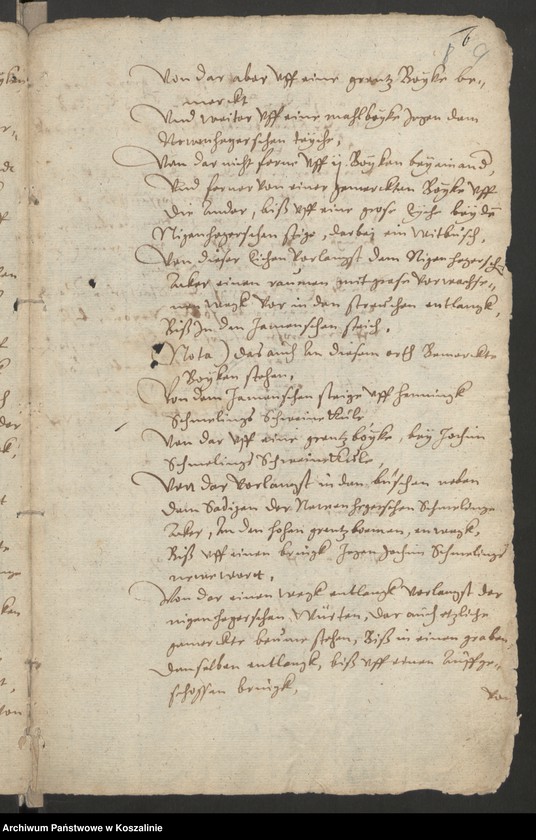 6 9
Von dar aber Vff eine grentz Böyke be-
merckt
Vnd weiter Vff eine mahlböyke Jegen dem
Newenhegerschen teyche,
Von dar nicht ferne Vff ij Böyken beyeinand,
Vnd ferner Von einer gemerckten Böyke Vff
die ander, biß Vff eine grose Eyche beyde
Nigenhegerschen stige, darbey ein Witbusch,
Von dieser Eichen Vorlangst dem Nigenhegerschen
Acker einen raumen mit grase Vorwachse-
nen wegk Vor in den streuchen entlangk,
Biß In den Jamenschen steich,
(Nota) das auch An diesem orth Bemerckte
Böyken stehen,
Von dem Jamenschen steige Vff Henningk
Schmelings Schweinekule
Von dar Vff eine grentzböyke, bey Jochim
Schmelings Schweinekule,
Von dar Vorlangst in den büschen neben
dem der Newenhegerschen Schmelinge
Acker, An den hohen grentzboemen, wegk,
Biß Vff einen brugk Jegen Jochim Schmelings
newe wort,
Von dar einen wegk entlangk Vorlangst der
nigenhegerschen Würten, dar auch etzliche
gemerckte beume stehen, Biß in einen graben,
demselben entlangk, biß Vff einen Auffge-
schossen brugk,
Von
Archiwum Państwowe w Koszalinie